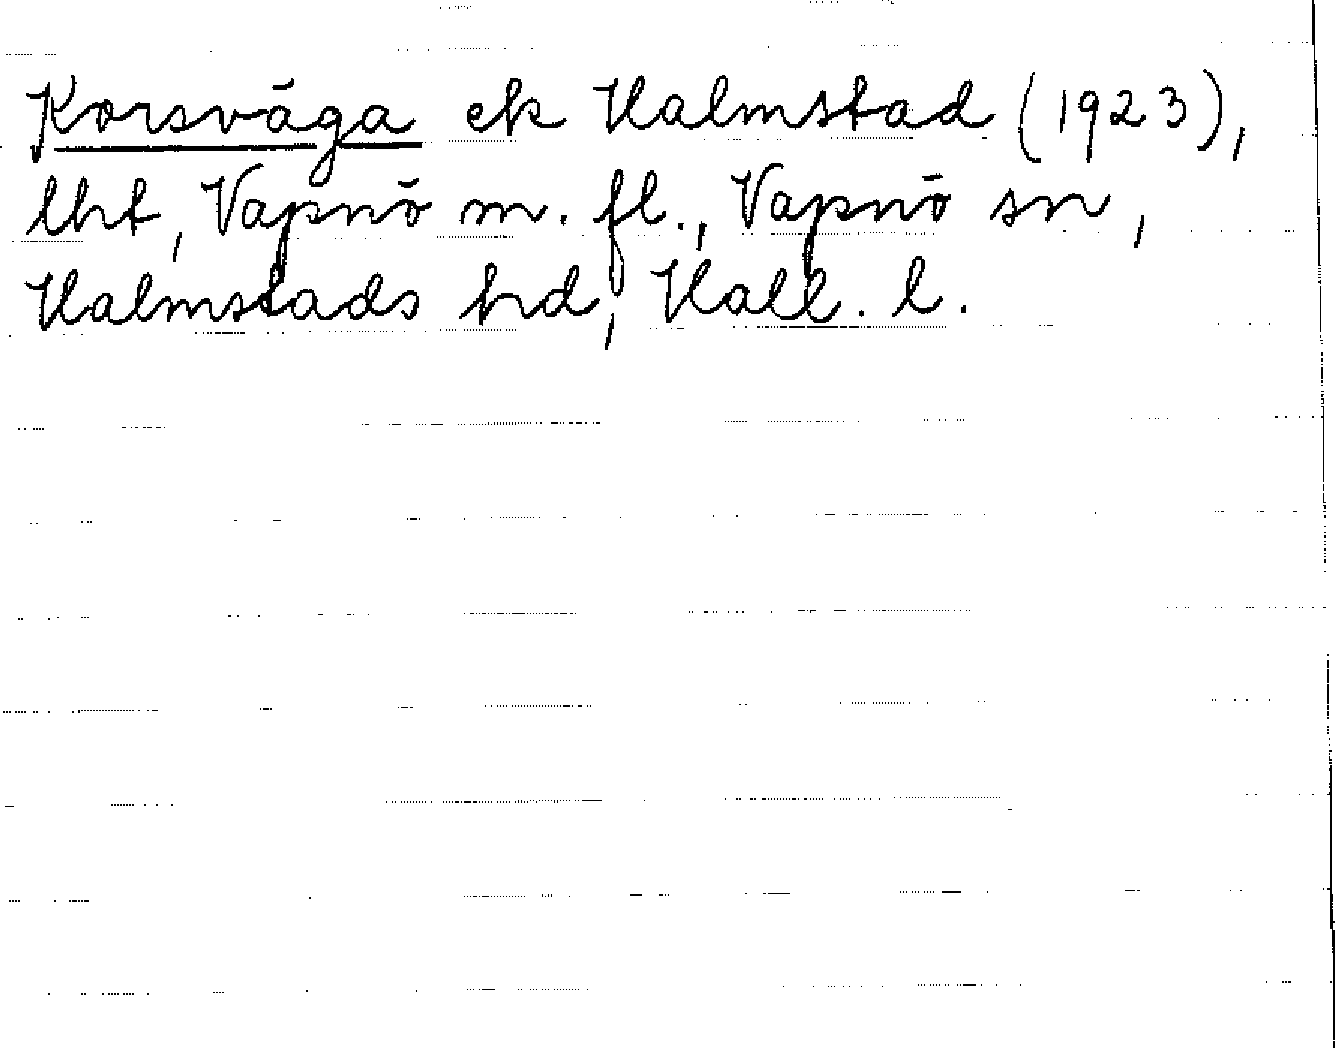 Korsvāga ek Halmstad (1923),
lht, Vapnö m. fl., Vapnö sn,
Halmstads hd, Hall. l.